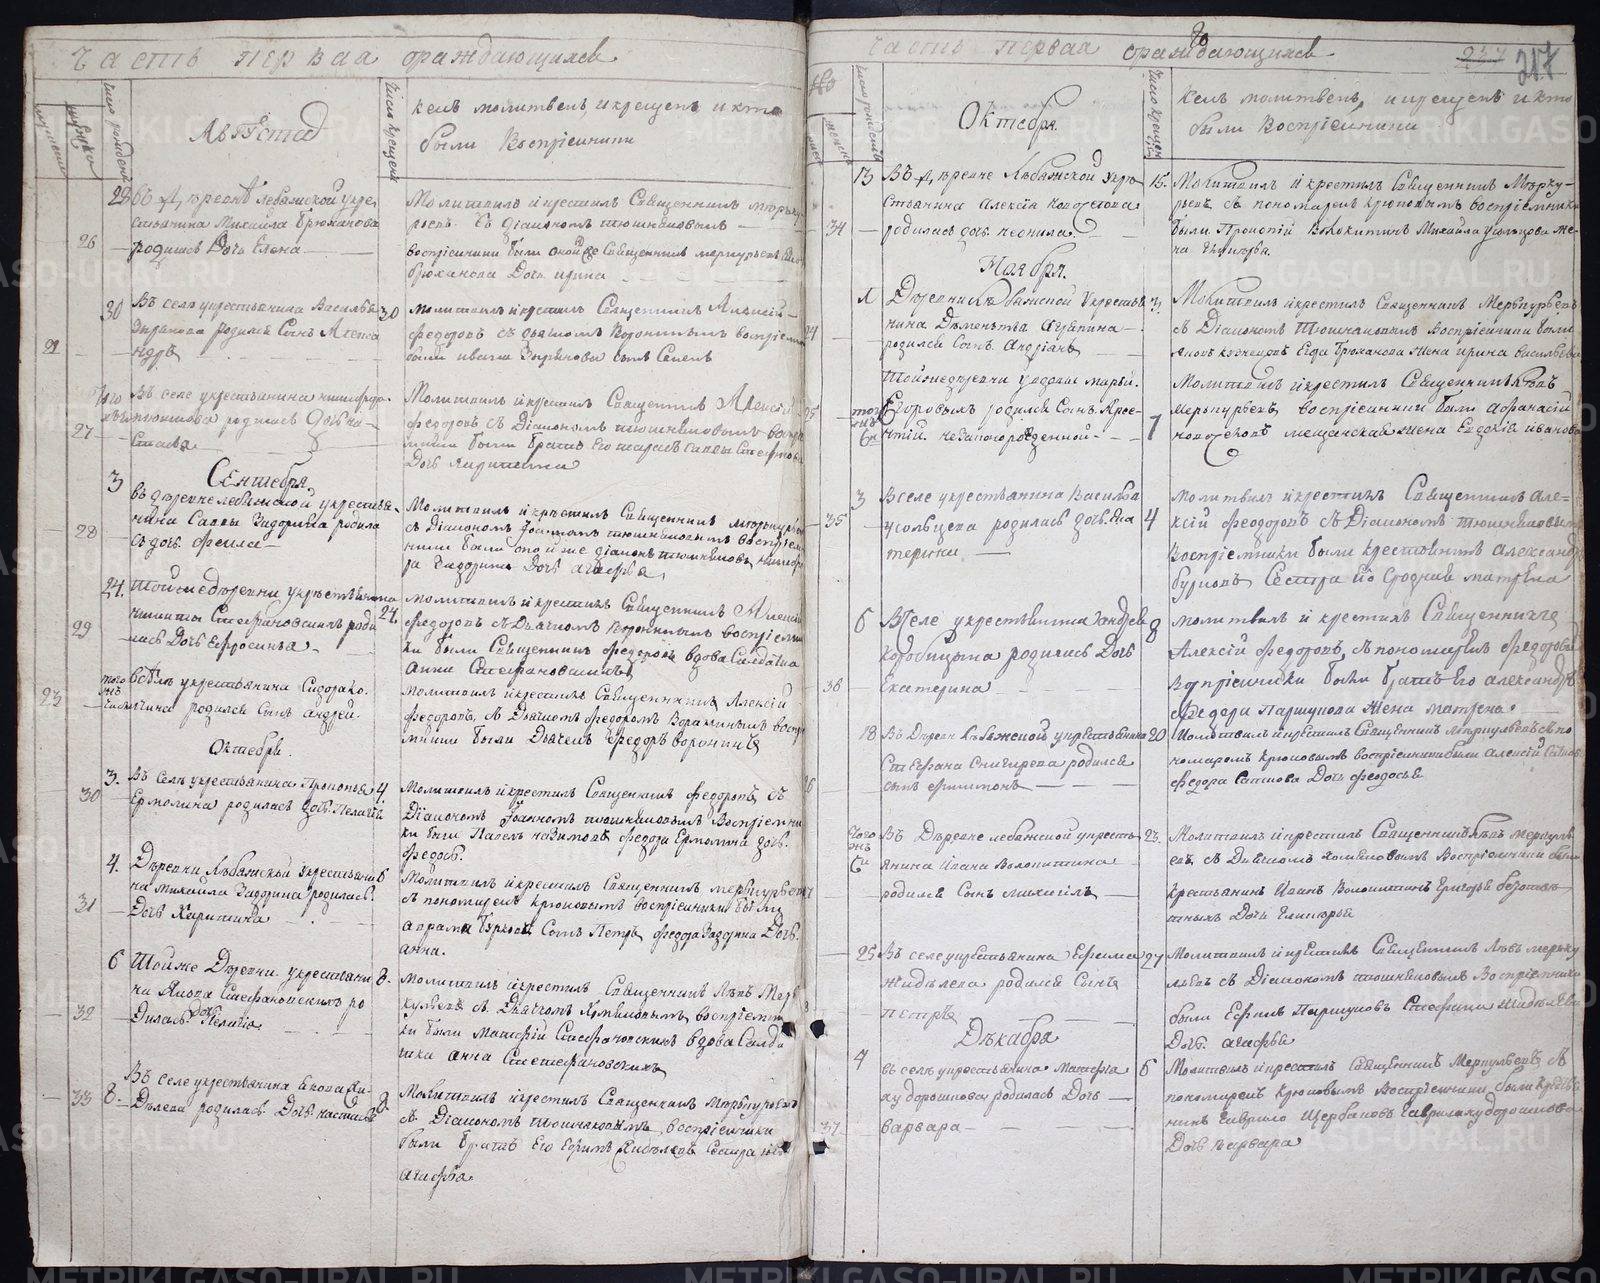 Часть первая ораждающихся
Август
кемъ молитвенъ, и крещенъ и кто
были Воспріемники
число рожденія
число крещенія
28 въ деревне лебяжской у кре
стьянина Михаила Брюханова
26 родилась Дочь Елена
Молитвилъ и крестилъ Священникъ мѣрку
рьевъ съ діакономъ тюшняковымъ
воспріемники были оной же Священникъ меркурьевъ
брюханова Дочь ирина
30 Въ селе у крестьянина Василья
Зырянова родился Сынъ Алекса
21 ндръ
30 молитвилъ и крестилъ Священникъ Алексѣй
Федоровъ съ дьячкомъ Воронинымъ воспріем
были ивана Зырянова сынъ Семенъ
того Въ селе у крестьянина никифора
тюшнякова родилась Дочь на
27 стасья
Молитвилъ и крестилъ Священникъ Алексѣй
федоровъ съ Діакономъ тюшняковымъ воспр
Сентября
3 въ деревне лебяжской у крестья
нина Саввы Задорина родила
28 сь дочь Фекла
Молитвилъ и крестилъ Священникъ мѣркурьевъ
съ Діакономъ Іоанномъ тюшняковымъ воспріем
ники были оной же діаконъ тюшняковъ никифо
ра Задорина Дочь агафья
24. Той же деревни у крестьянина
никиты Стефановскихъ роди
29 лась Дочь Ефросинья
24. молитвилъ и крестилъ Священникъ Алексѣй
федоровъ съ Дьячкомъ Воронинымъ воспріемни
ки были Священникъ федоровъ вдова Салдатка
Анна Стефановскихъ
того жъ числа въ селе у крестьянина Сидора ко
23 чина родился Сынъ андрей
молитвилъ и крестилъ Священникъ Алексѣй
федоровъ, съ Дьячкомъ федоромъ Воронинымъ воспр
мники были Дьячекъ Федоръ Воронинъ
Октебря
3. Въ Селе у крестьянина Прокопья
30 Ермолина родилась дочь Пелагѣя
4. Молитвилъ и крестилъ Священникъ федоровъ, съ
Діакономъ Іоанномъ тюшняковымъ Воспріемни
ки были Павелъ назимовъ федора Ермолина дочь
федось.
4. Деревни Лѣбяжской у крестьяни
на михайла Задорина родилась
31 Дочь Харитина
6 Молитвилъ и крестилъ Священникъ меркурьевъ
съ пономаремъ крюковымъ воспріемники были
аврама Сынъ Петръ, федора Задорина Дочь
анна.
6 Той же Деревни у крестьяни
на Якова Стефановскихъ ро
32 дилась дочь Пелагія
8. Молитвилъ и крестилъ Священникъ Левъ Мер
курьевъ съ Дьячкомъ воспріемни
ки были Матфѣй Стефановскихъ вдова Салда
тка анна Стефановскихъ
8. Въ селе у крестьянина Якова Жи
33 делева родилась Дочь настасья
9. Молитвилъ и крестилъ Священникъ Мѣркурьевъ
съ Діакономъ тюшняковымъ воспріемники
были братъ Его Ефимъ Жиделевъ Сестра ихъ
агафья
Часть первая ораждающихся
237 217
Октебря
кемъ молитвенъ, и крещенъ и кто
были Воспріемники
13 Въ деревне Лѣбяжской у кре
стьянина Алексѣя
34 родилась дочь неонила
15. Молитвилъ и крестилъ Священникъ Мѣрку
рьевъ съ пономаремъ крюковымъ воспріемники
были Прокопій Волокитинъ Михайла Усольцова же
на
Ноября
1 Деревни Лѣбяжской у крестья
нина Дементья
24 родился Сынъ Андріанъ
3. Молитвилъ и крестилъ Священникъ Меркурьевъ
съ Діакономъ Тюшняковымъ Воспріемники были
Яковъ кузнецовъ Брюханова жена ирина васильева
Той же деревни у вдовы марьи
25 Егоровыхъ родился Сынъ Арсе
нтій. незаконорожденной
7 Молитвилъ и крестилъ Священникъ Левъ
Меркурьевъ, воспріемники были афанасій
мещанская жена Евдокія иванова
3 Вселе у крестьянина Василья
35 усольцева родилась дочь Ека
терина
4 молитвилъ и крестилъ Священникъ Але
ксѣй федоровъ съ Діакономъ тюшняковымъ
воспріемники были крестьянинъ александръ
бурковъ Сестра Его Сродная матрена
6 Вселе у крестьянина Андрея
коробицына родилась Дочь
36 Екатерина
8 молитвилъ и крестилъ Священникъ
Алексѣй федоровъ, съ пономаремъ федоровымъ
воспріемники были братъ Его александръ
федора Паршукова жена матрена
18 Въ Деревне Лебяжской у крестьянина
Стефана Снигирева родился
26 сынъ Филимонъ
20 Молитвилъ и крестилъ Священникъ Меркурьевъ съ по
номаремъ крюковымъ воспріемники были Алексѣй
федора Саткова Дочь федосья
Того жъ Въ Деревне лебяжской у кресть
янина Ивана Волокитина
27 родился Сынъ михаилъ
23. Молитвилъ и крестилъ Священникъ Левъ меркурь
евъ съ Дьячкомъ Воспріемники были
крестьянинъ Иванъ Волокитинъ Григорья
Дочь Гликерья
25 Въ селе у крестьянина Ефима
жиделева родился Сынъ
28 петръ
27 Молитвилъ и крестилъ Священникъ Левъ мерку
рьевъ съ Діакономъ тюшняковымъ Воспріемники
были Ефимъ Паршуковъ Стефана жиделева
Дочь агафья
Декабря
4 въ селе у крестьянина Матфѣя
худорошкова родилась Дочь
37 варвара
6 Молитвилъ и крестилъ Священникъ Меркурьевъ съ
пономаремъ Крюковымъ Воспріемники были
Гаврило Щербаковъ Гаврила худорошкова
Дочь варвара
METRIKI.GASO-URAL.RU